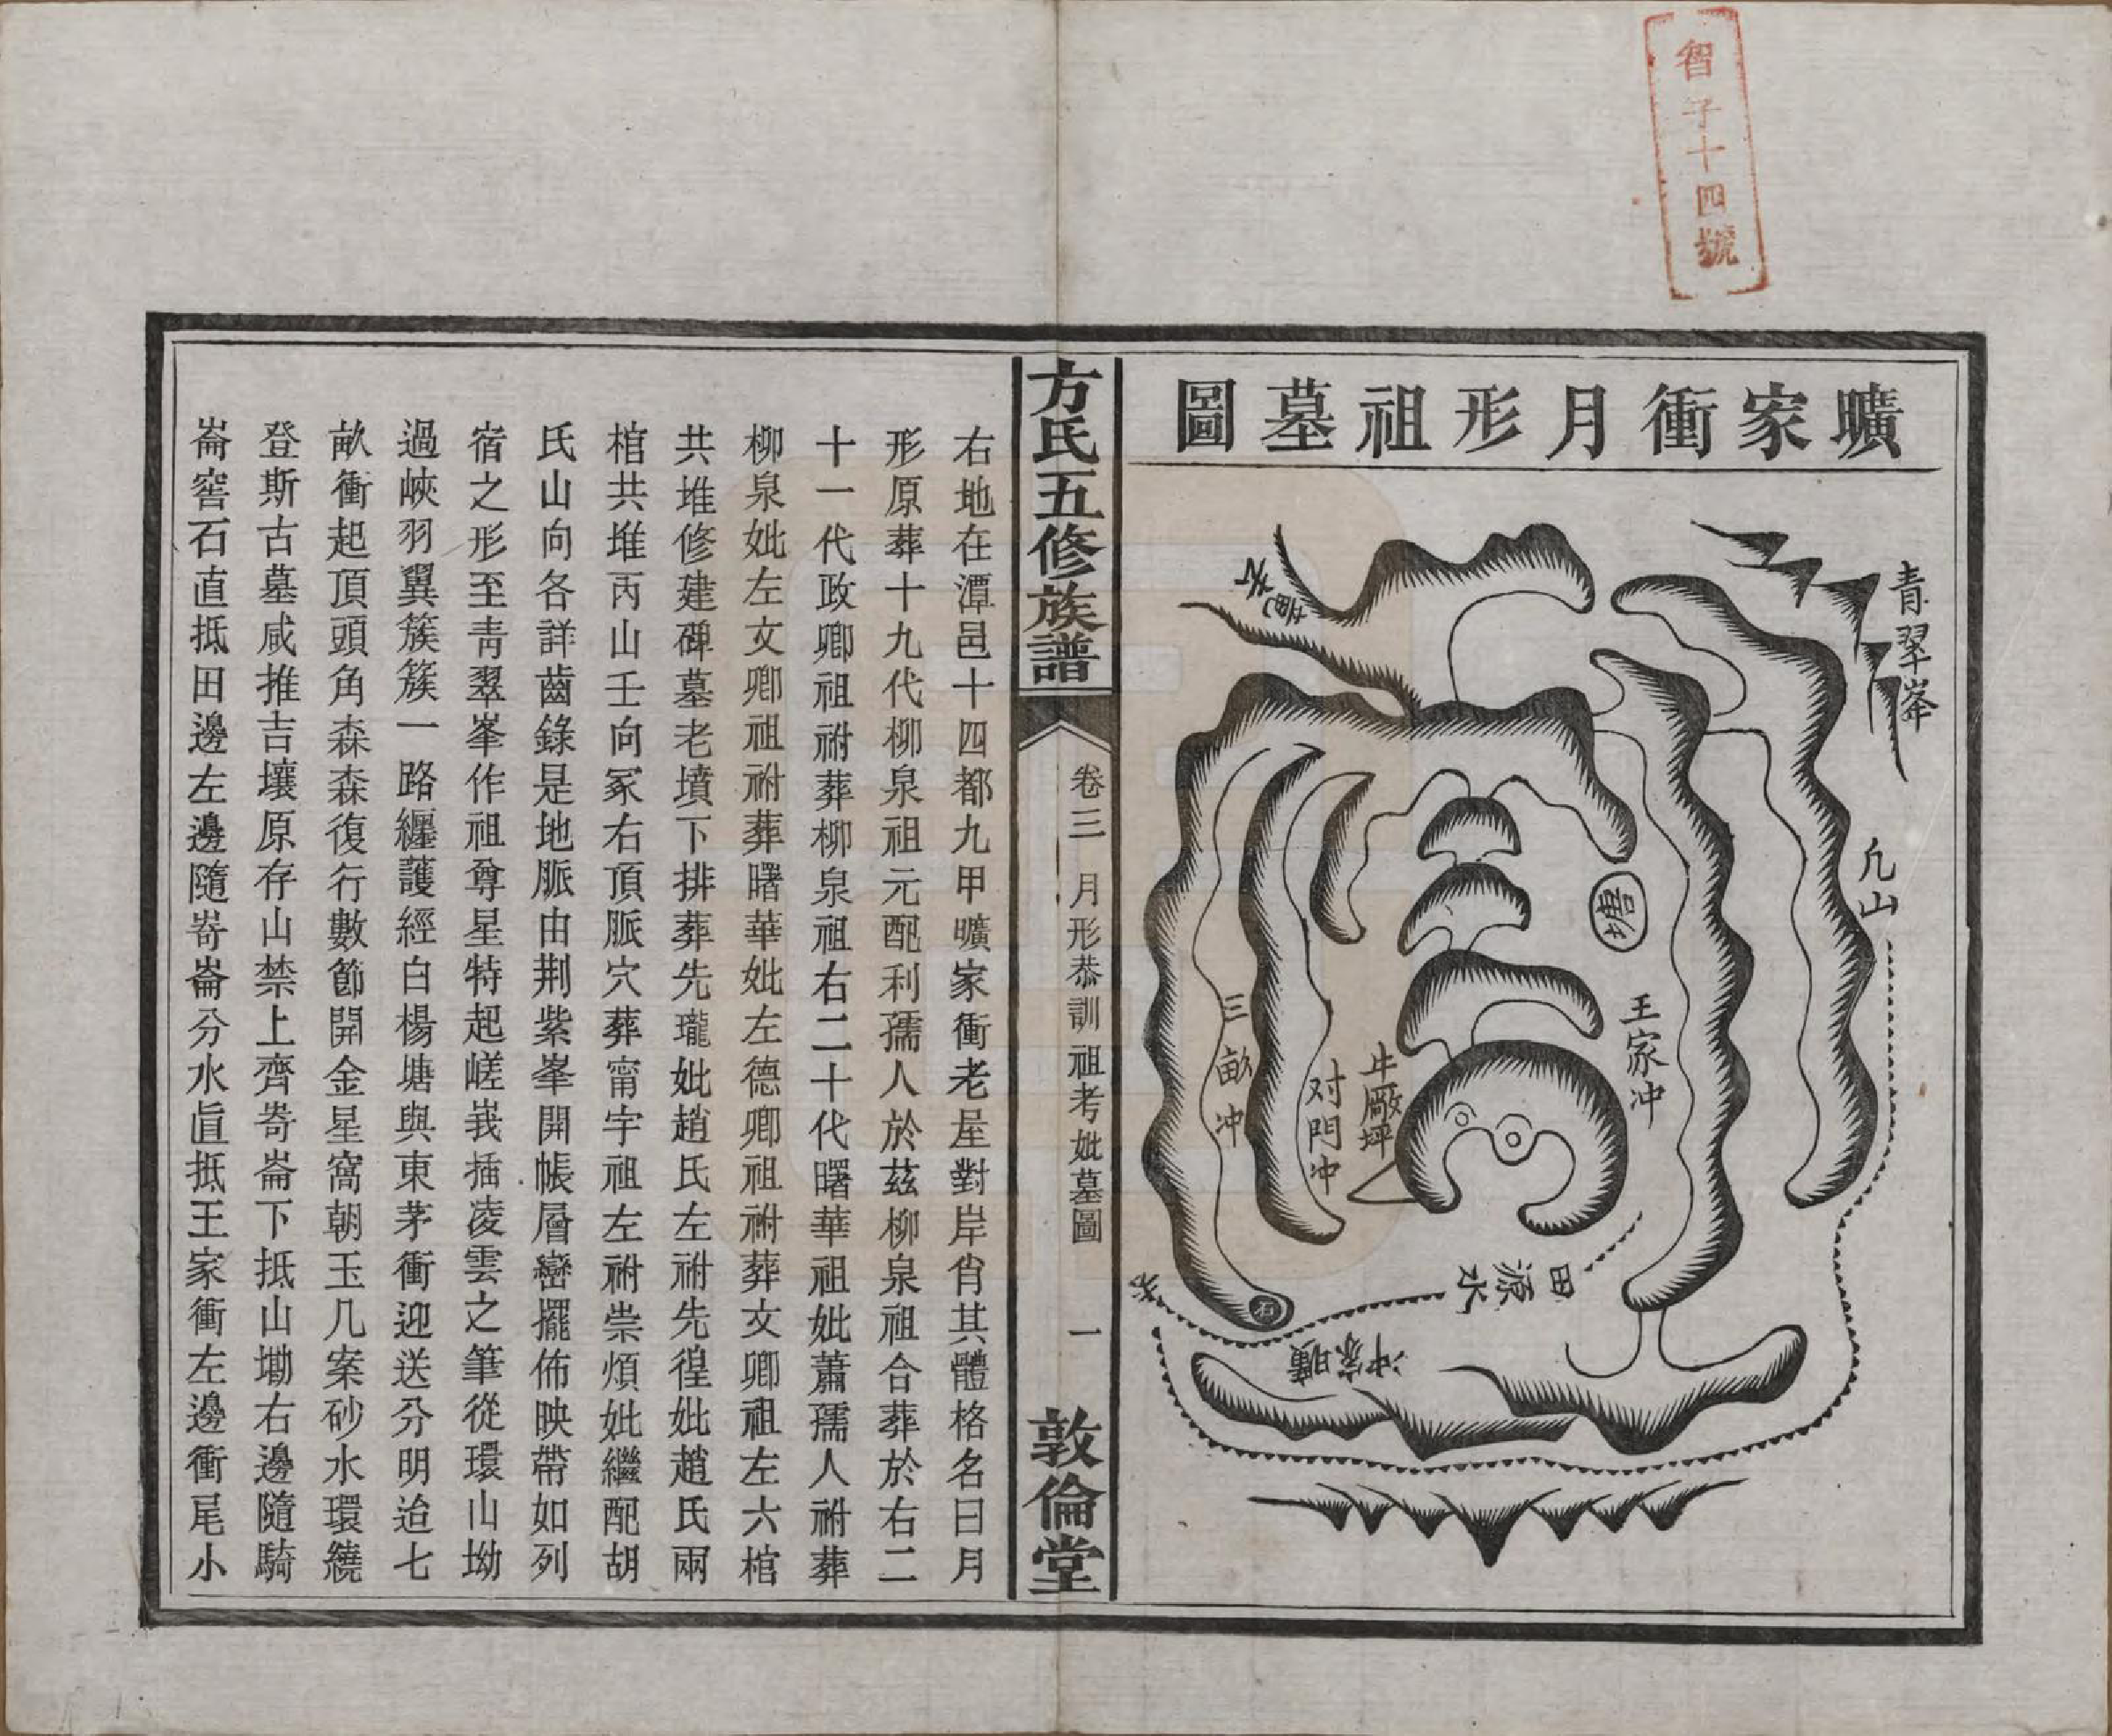 智字十四號
曠家衝月形祖墓圖
青翠峯
九山
塘
王家冲
牛廠坪
对門冲
三畝冲
石
田源水
曠家冲
方氏五修族譜
卷三
月形恭訓祖考妣墓圖
一
敦倫堂
右地在潭邑十四都九甲曠家衝老屋對岸肖其體格名曰月
形原葬十九代柳泉祖元配利孺人於茲柳泉祖合葬於右二
十一代政卿祖祔葬柳泉祖右二十代曙華祖妣蕭孺人祔葬
柳泉妣左文卿祖祔葬曙華妣左德卿祖祔葬文卿祖左六棺
共堆修建碑墓老墳下排葬先瓏妣趙氏左祔先徨妣趙氏兩
棺共堆丙山壬向冢右頂脈穴葬甯宇祖左祔崇煩妣繼配胡
氏山向各詳齒錄是地脈由荆紫峯開帳層巒擺佈映帶如列
宿之形至靑翠峯作祖尊星特起嵯峩插凌雲之筆從環山坳
過峽羽翼簇簇一路纒護經白楊塘與東茅衝迎送分明迨七
畝衝起頂頭角森森復行數節開金星窩朝玉几案砂水環繞
登斯古墓咸推吉壤原存山禁上齊嵜崙下抵山塝右邊隨騎
崙窖石直抵田邊左邊隨嵜崙分水眞抵王家衝左邊衝尾小